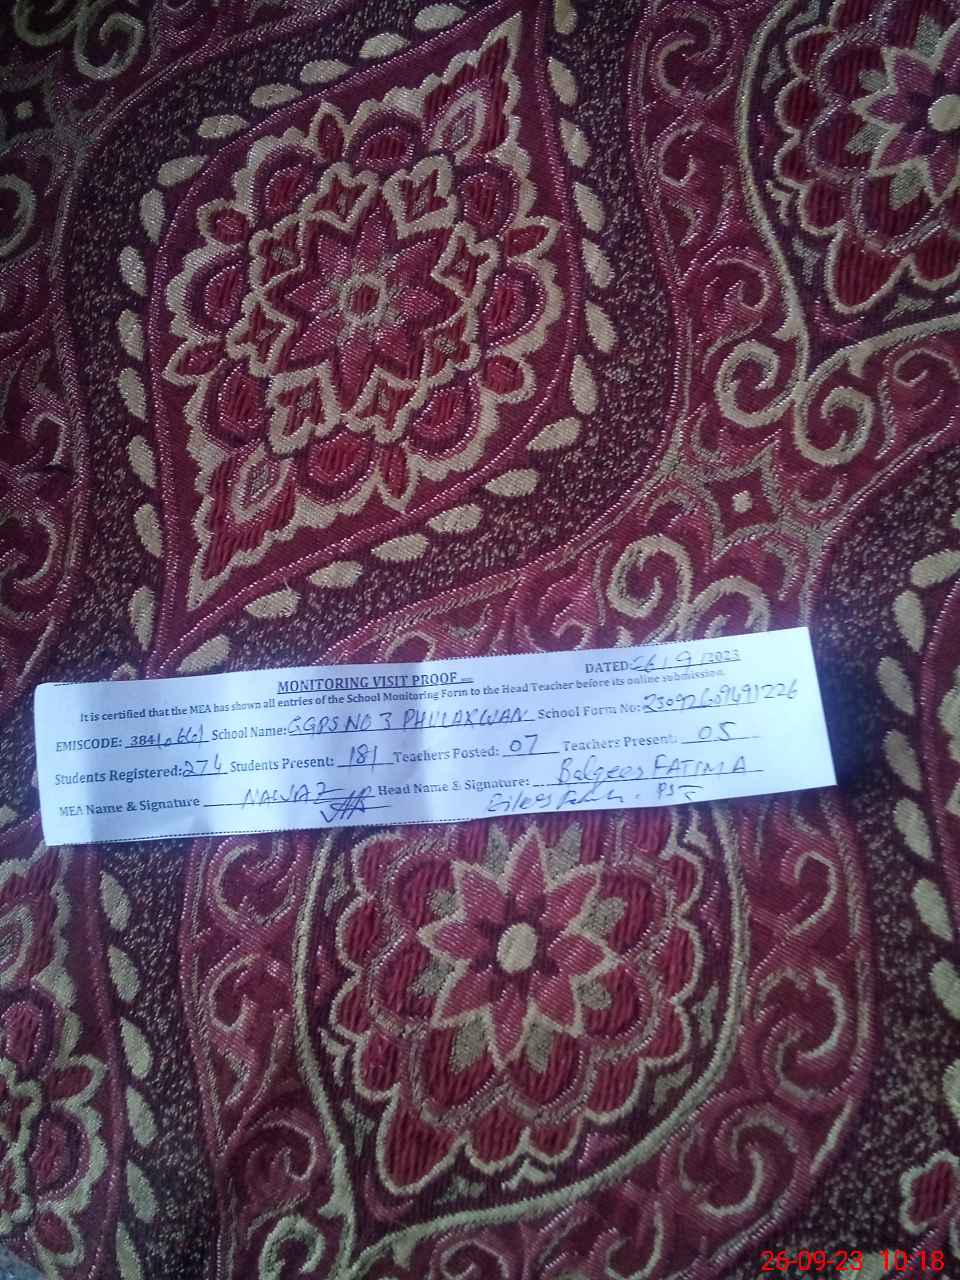 MONITORING VISIT PROOF
DATED 26/9/2023
It is certified that the MEA has shown all entries of the School Monitoring Form to the Head Teacher before its online submission.
EMISCODE: 3841 School Name: GGPS NO 3 School Form No:
Students Registered: 274 Students Present: 181 Teachers Posted: 07 Teachers Present: 05
MEA Name & Signature NAWAZ Head Name & Signature: Balqees FATIMA
PST
26-09-23 10:18